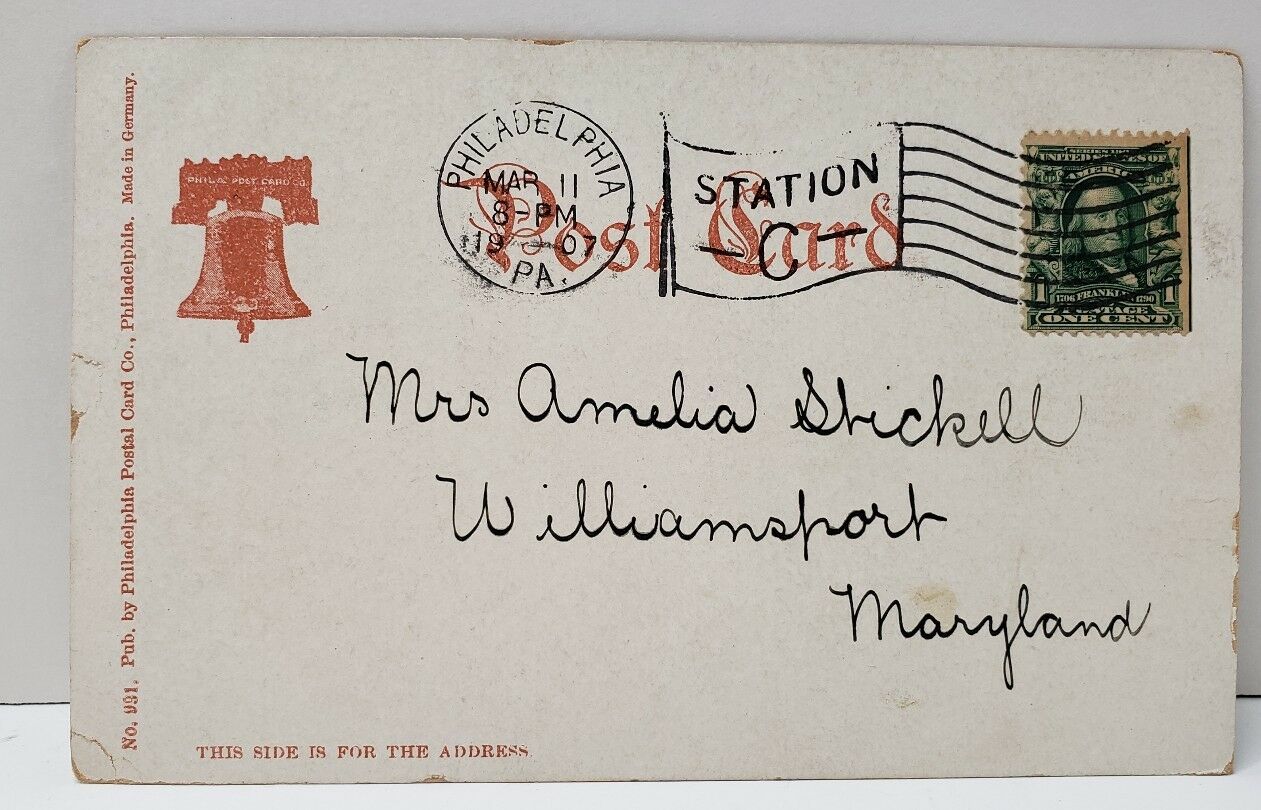 No. 991. Pub. by Philadelphia Postal Card Co., Philadelphia. Made in Germany.
PHILA. POST CARD CO.
PHILADELPHIA
MAR 11
8-PM
19 07
PA.
STATION
-C-
Post Card
SERIES 1902
UNITED STATES OF
AMERICA
1 1706 FRANKLIN 1790 1
POSTAGE
ONE CENT
Mrs Amelia Stickell
Williamsport
Maryland
THIS SIDE IS FOR THE ADDRESS.